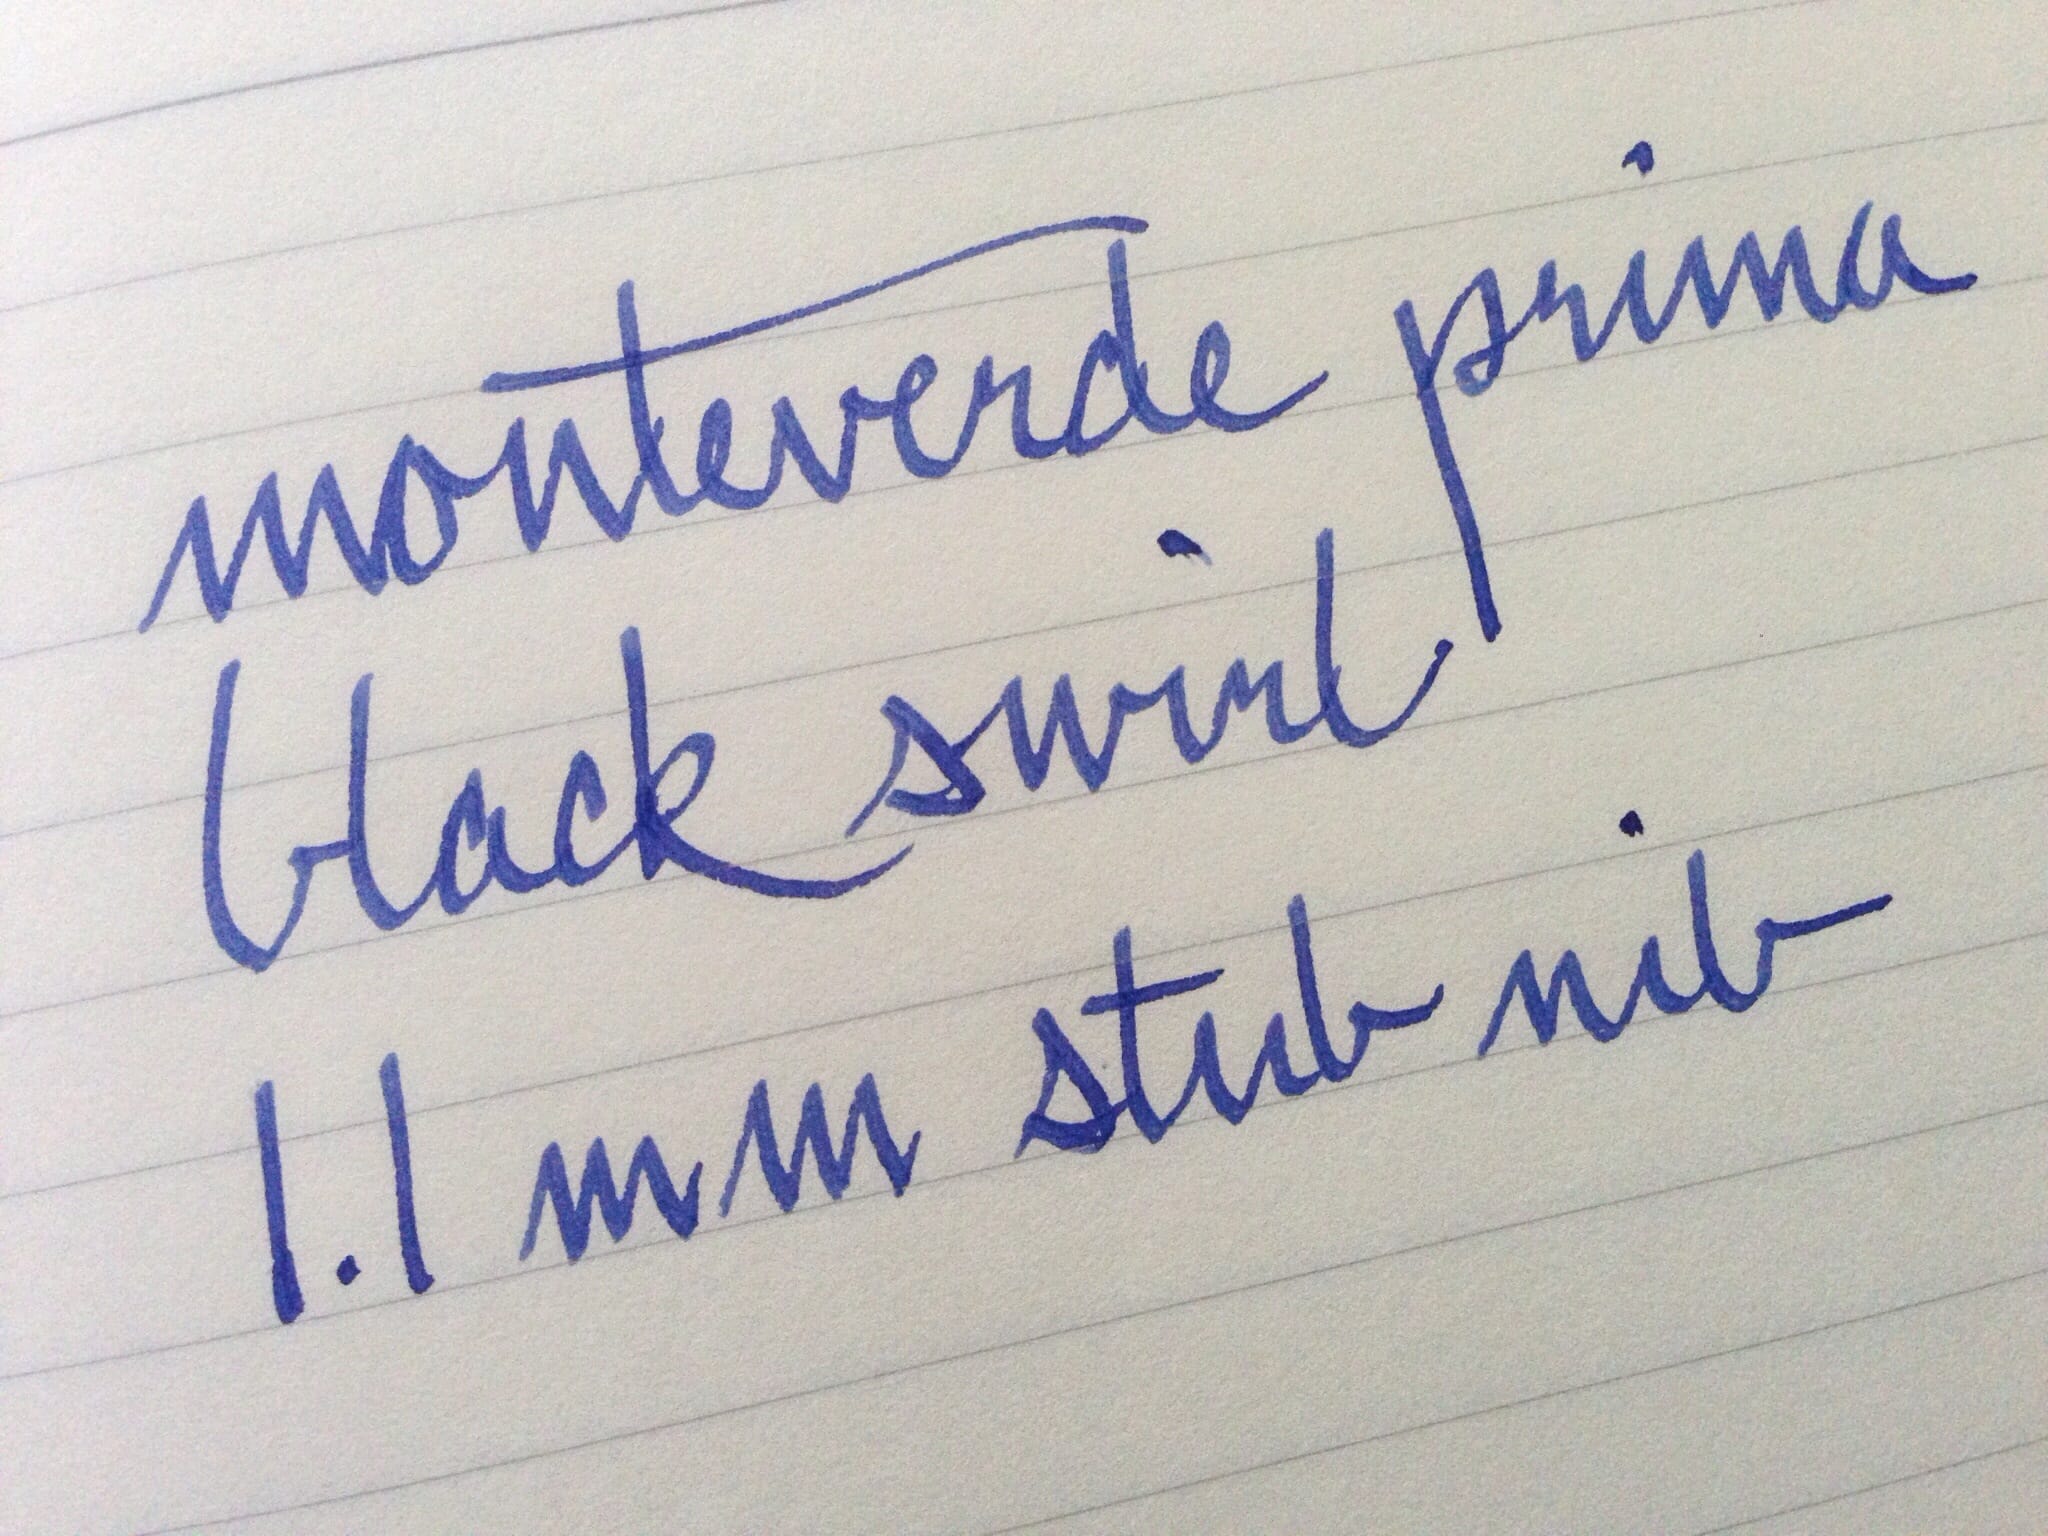 monteverde prima
black swirl
1.1 mm stub nib